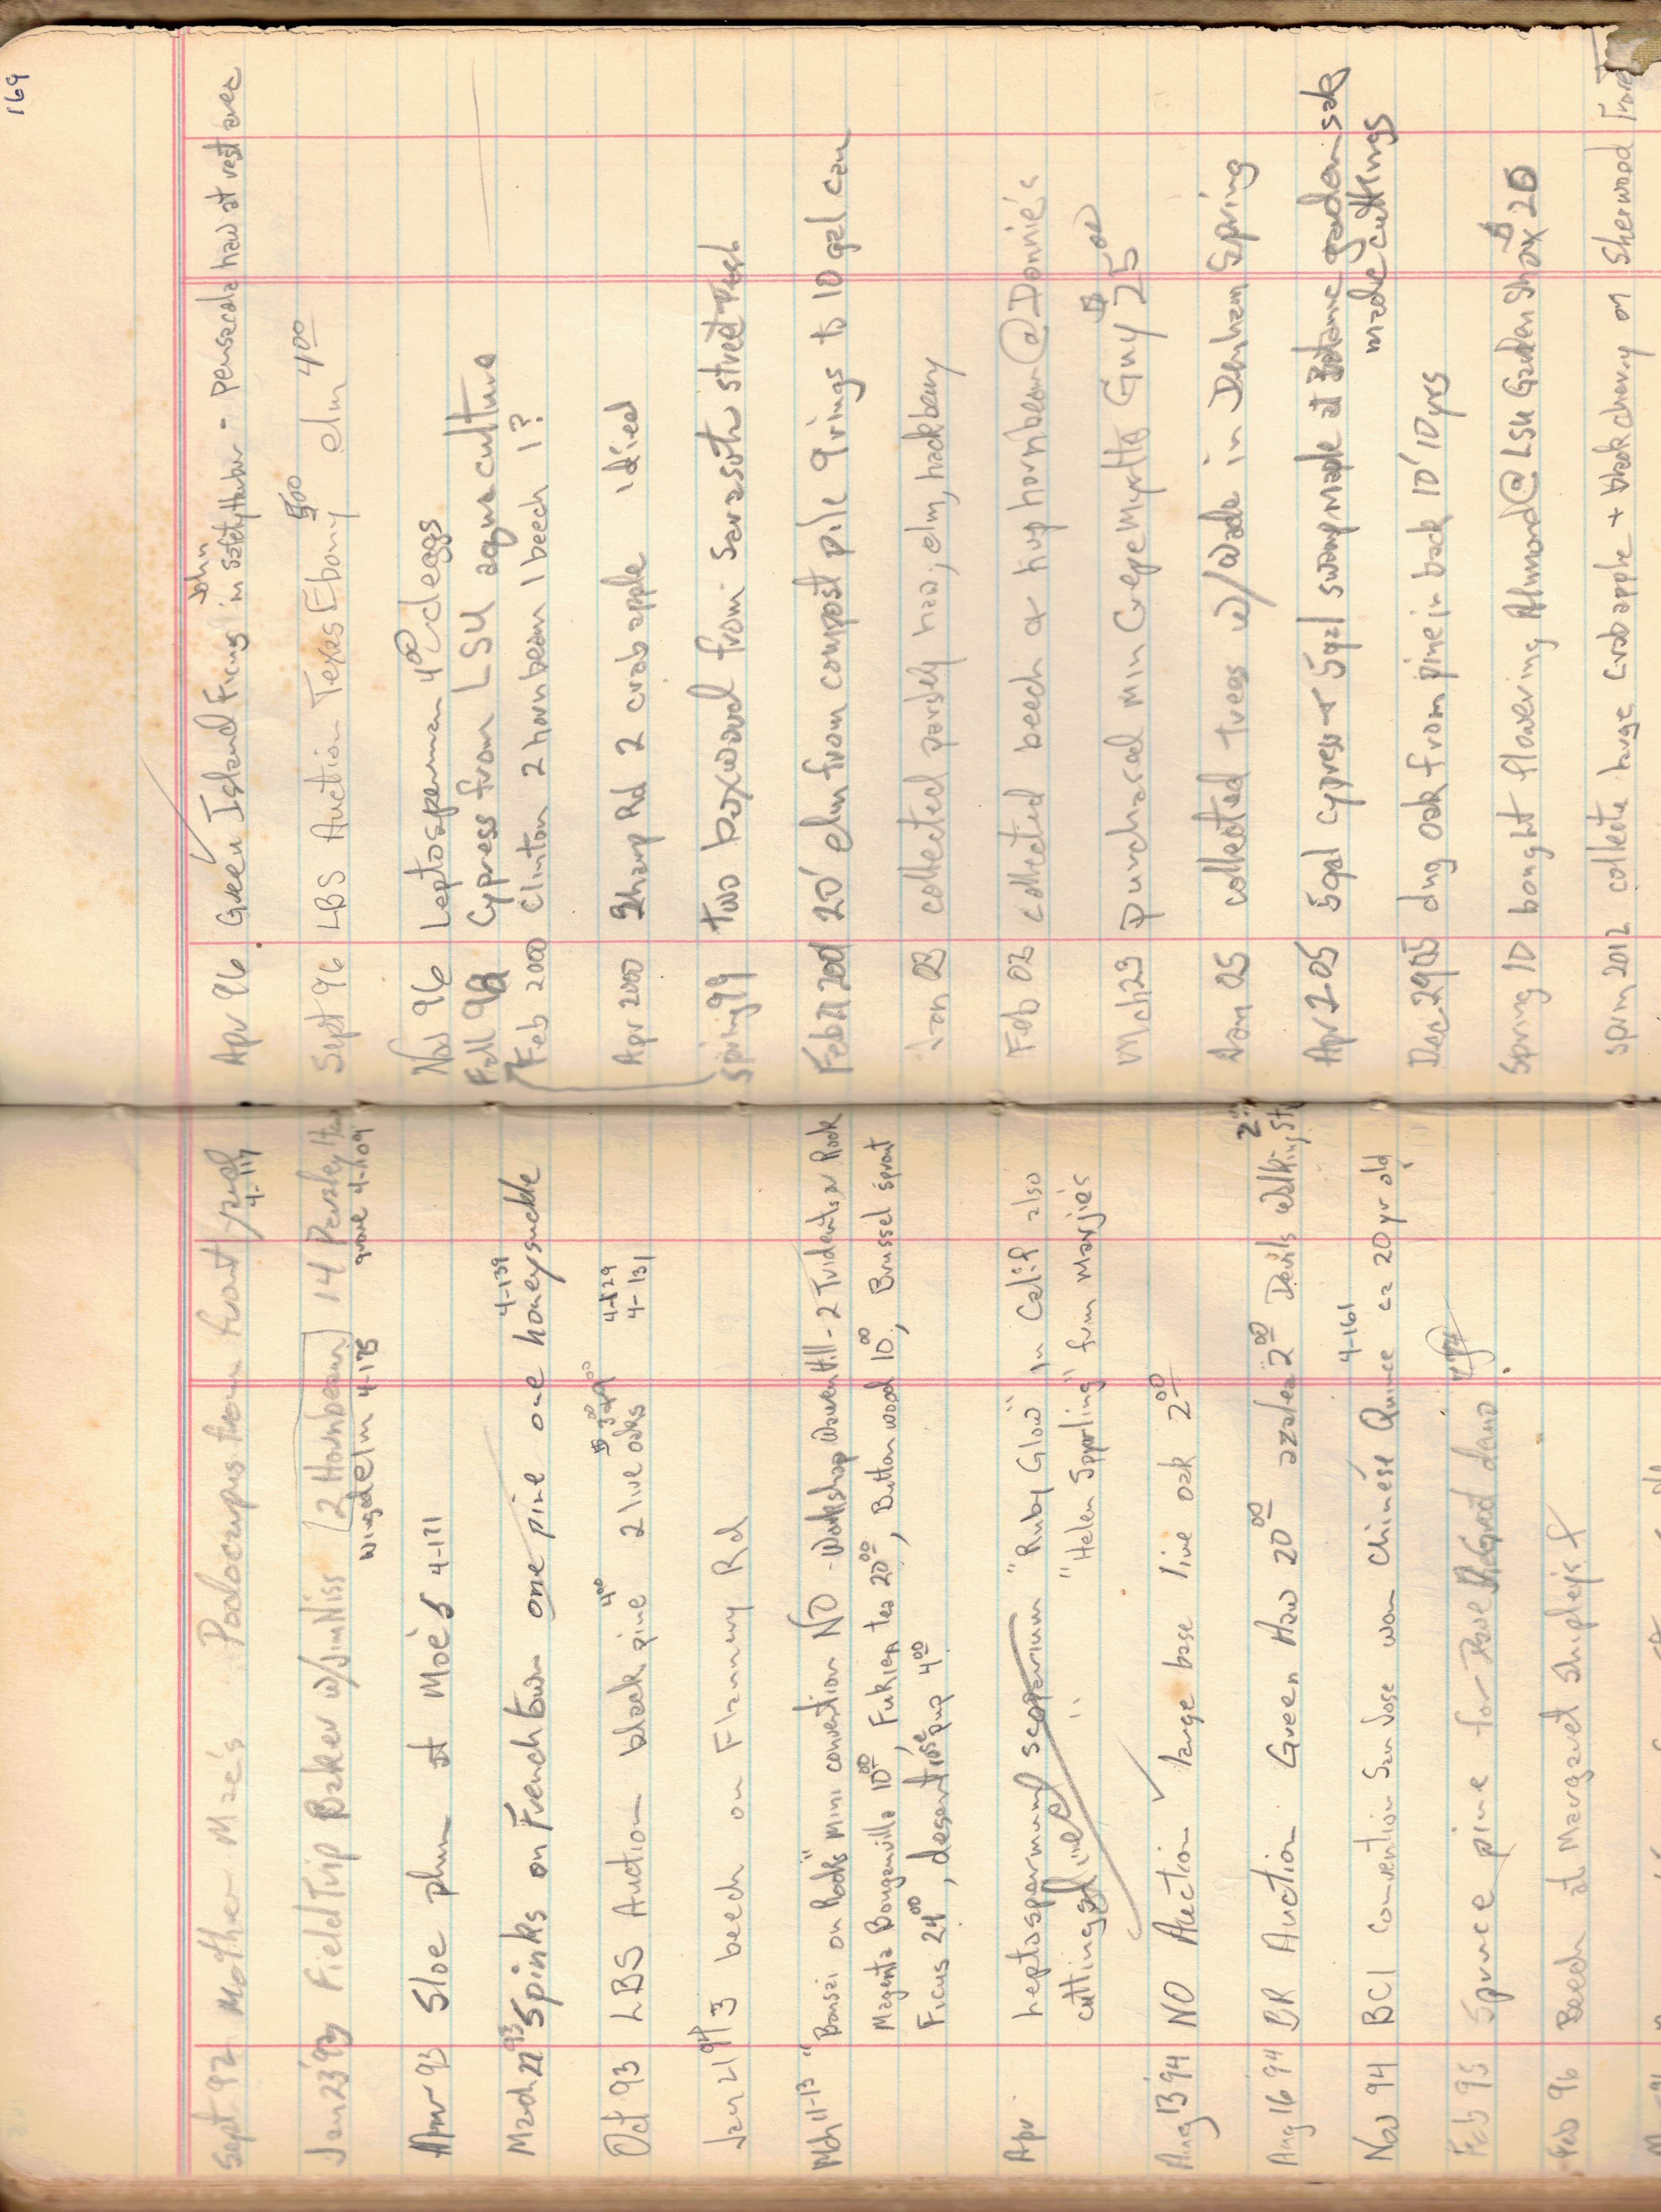 169
Sept 92 Mother Mae's Podocarpus from front yard
4-117
Jan 23 '93 Field Trip Baker w/Jim Hiss 2 Hornbeam 14 Parsley Haw
winged elm 4-175 grove 4-109
93 Sloe plum at Moe's 4-171
4-139
March 22 93 Spinks on Frenchtown one pine one honeysuckle
Oct 93 LBS Auction black pine 400 2 live oaks $3.00 + 9.00 4-129
4-131
Jan 21 94 3 beech on Flannery Rd
Mch 11-13 "Bonsai on Rocks" mini convention NO - Workshop Warren Hill - 2 Tridents on Rock
Magenta Bouganvilla 10.00, Fukien tea 20.00, Buttonwood 10.00, Brussel sprout
Ficus 24.00, desert rose pup 4.00
Apr Leptospermum scoparium "Ruby Glow" in Calif also
cuttings died " "Helen Spporling" from Marjie's
Aug 13 '94 NO Auction ✓ large base live oak 2.00
Aug 16 '94 BR Auction Green Haw 20.00 azalea 2.00 Devils Walking St 2
4-161
Nov 94 BCI Convention San Jose won Chinese Quince ca 20 yr old
Feb 95 Spruce pine for Dave DeGroot demo
Feb 96 Beech at Margaret Shipley's
John
Apr 96 Green Island Ficus in Safety Harbor - pensacola haw at rest area
Sept 96 LBS Auction Texas Ebony 5.00 elm 4.00
Nov 96 Leptosperman 4.00 Cleggs
Fall 98 Cypress from LSU aquaculture
Feb 2000 Clinton 2 hornbeam 1 beech 1?
Apr 2000 Sharp Rd 2 crabapple 1 died
Spring 99 two boxwood from Sarasota street Fest
Feb 21 2001 20' elm from compost pile 9 rings to 10 gal can
Jan 03 collected parsley haw, elm, hackberry
Feb 03 collected beech & hup hornbeam @ Donnie's
Mch 23 purchased min Crepe Myrtle Guy $25.00
Jan 05 collected trees w/Wade in Denham Spring
Apr 2 05 5gal cypress + 5gal swamp maple at Botanic garden sale
made cuttings
Dec 29 05 dug oak from pine in back 10' 10yrs
Spring 10 bought flowering Almond @ LSU Garden Show $20
Sprin 2012 collecte large Crabapple + black cherry on Sherwood Forest